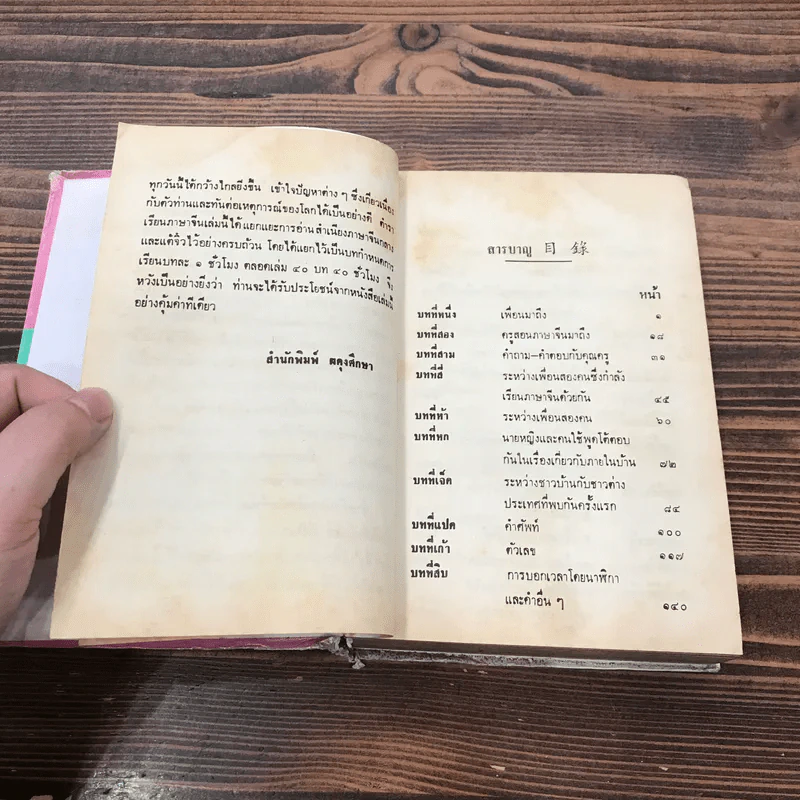 ทุกวันนี้ได้กว้างไกลยิ่งขึ้น เข้าใจปัญหาต่าง ๆ ซึ่งเกี่ยวเนื่อง
กับตัวท่านและทันต่อเหตุการณ์ของโลกได้เป็นอย่างดี ตำรา
เรียนภาษาจีนเล่มนี้ได้แยกแยะการอ่านสำเนียงภาษาจีนกลาง
และแต้จิ๋วไว้อย่างครบถ้วน โดยได้แยกไว้เป็นบทกำหนดการ
เรียนบทละ ๑ ชั่วโมง ตลอดเล่ม ๔๐ บท ๔๐ ชั่วโมง จึง
หวังเป็นอย่างยิ่งว่า ท่านจะได้รับประโยชน์จากหนังสือเล่มนี้
อย่างคุ้มค่าทีเดียว
สำนักพิมพ์ ผดุงศึกษา
สารบาญ 目 錄
หน้า
บทที่หนึ่ง เพื่อนมาถึง ๑
บทที่สอง ครูสอนภาษาจีนมาถึง ๑๘
บทที่สาม คำถาม–คำตอบกับคุณครู ๓๑
บทที่สี่ ระหว่างเพื่อนสองคนซึ่งกำลัง
เรียนภาษาจีนด้วยกัน ๔๕
บทที่ห้า ระหว่างเพื่อนสองคน ๖๐
บทที่หก นายหญิงและคนใช้พูดโต้ตอบ
กันในเรื่องเกี่ยวกับภายในบ้าน ๗๒
บทที่เจ็ด ระหว่างชาวบ้านกับชาวต่าง
ประเทศที่พบกันครั้งแรก ๘๔
บทที่แปด คำศัพท์ ๑๐๐
บทที่เก้า ตัวเลข ๑๑๗
บทที่สิบ การบอกเวลาโดยนาฬิกา
และคำอื่น ๆ ๑๔๐